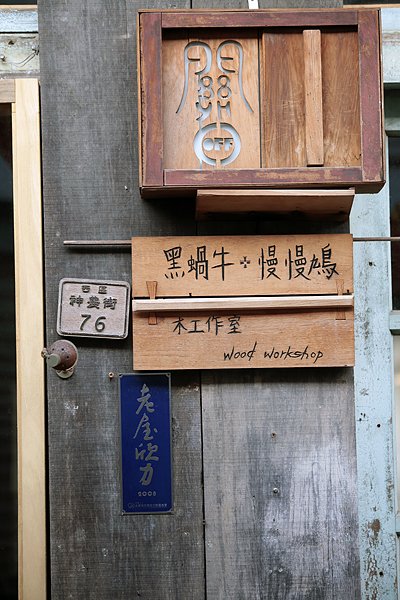 關
OFF
黑蝸牛·慢慢鳩
木工作室
wood workshop
西區
神農街
76
老屋欣力
2008